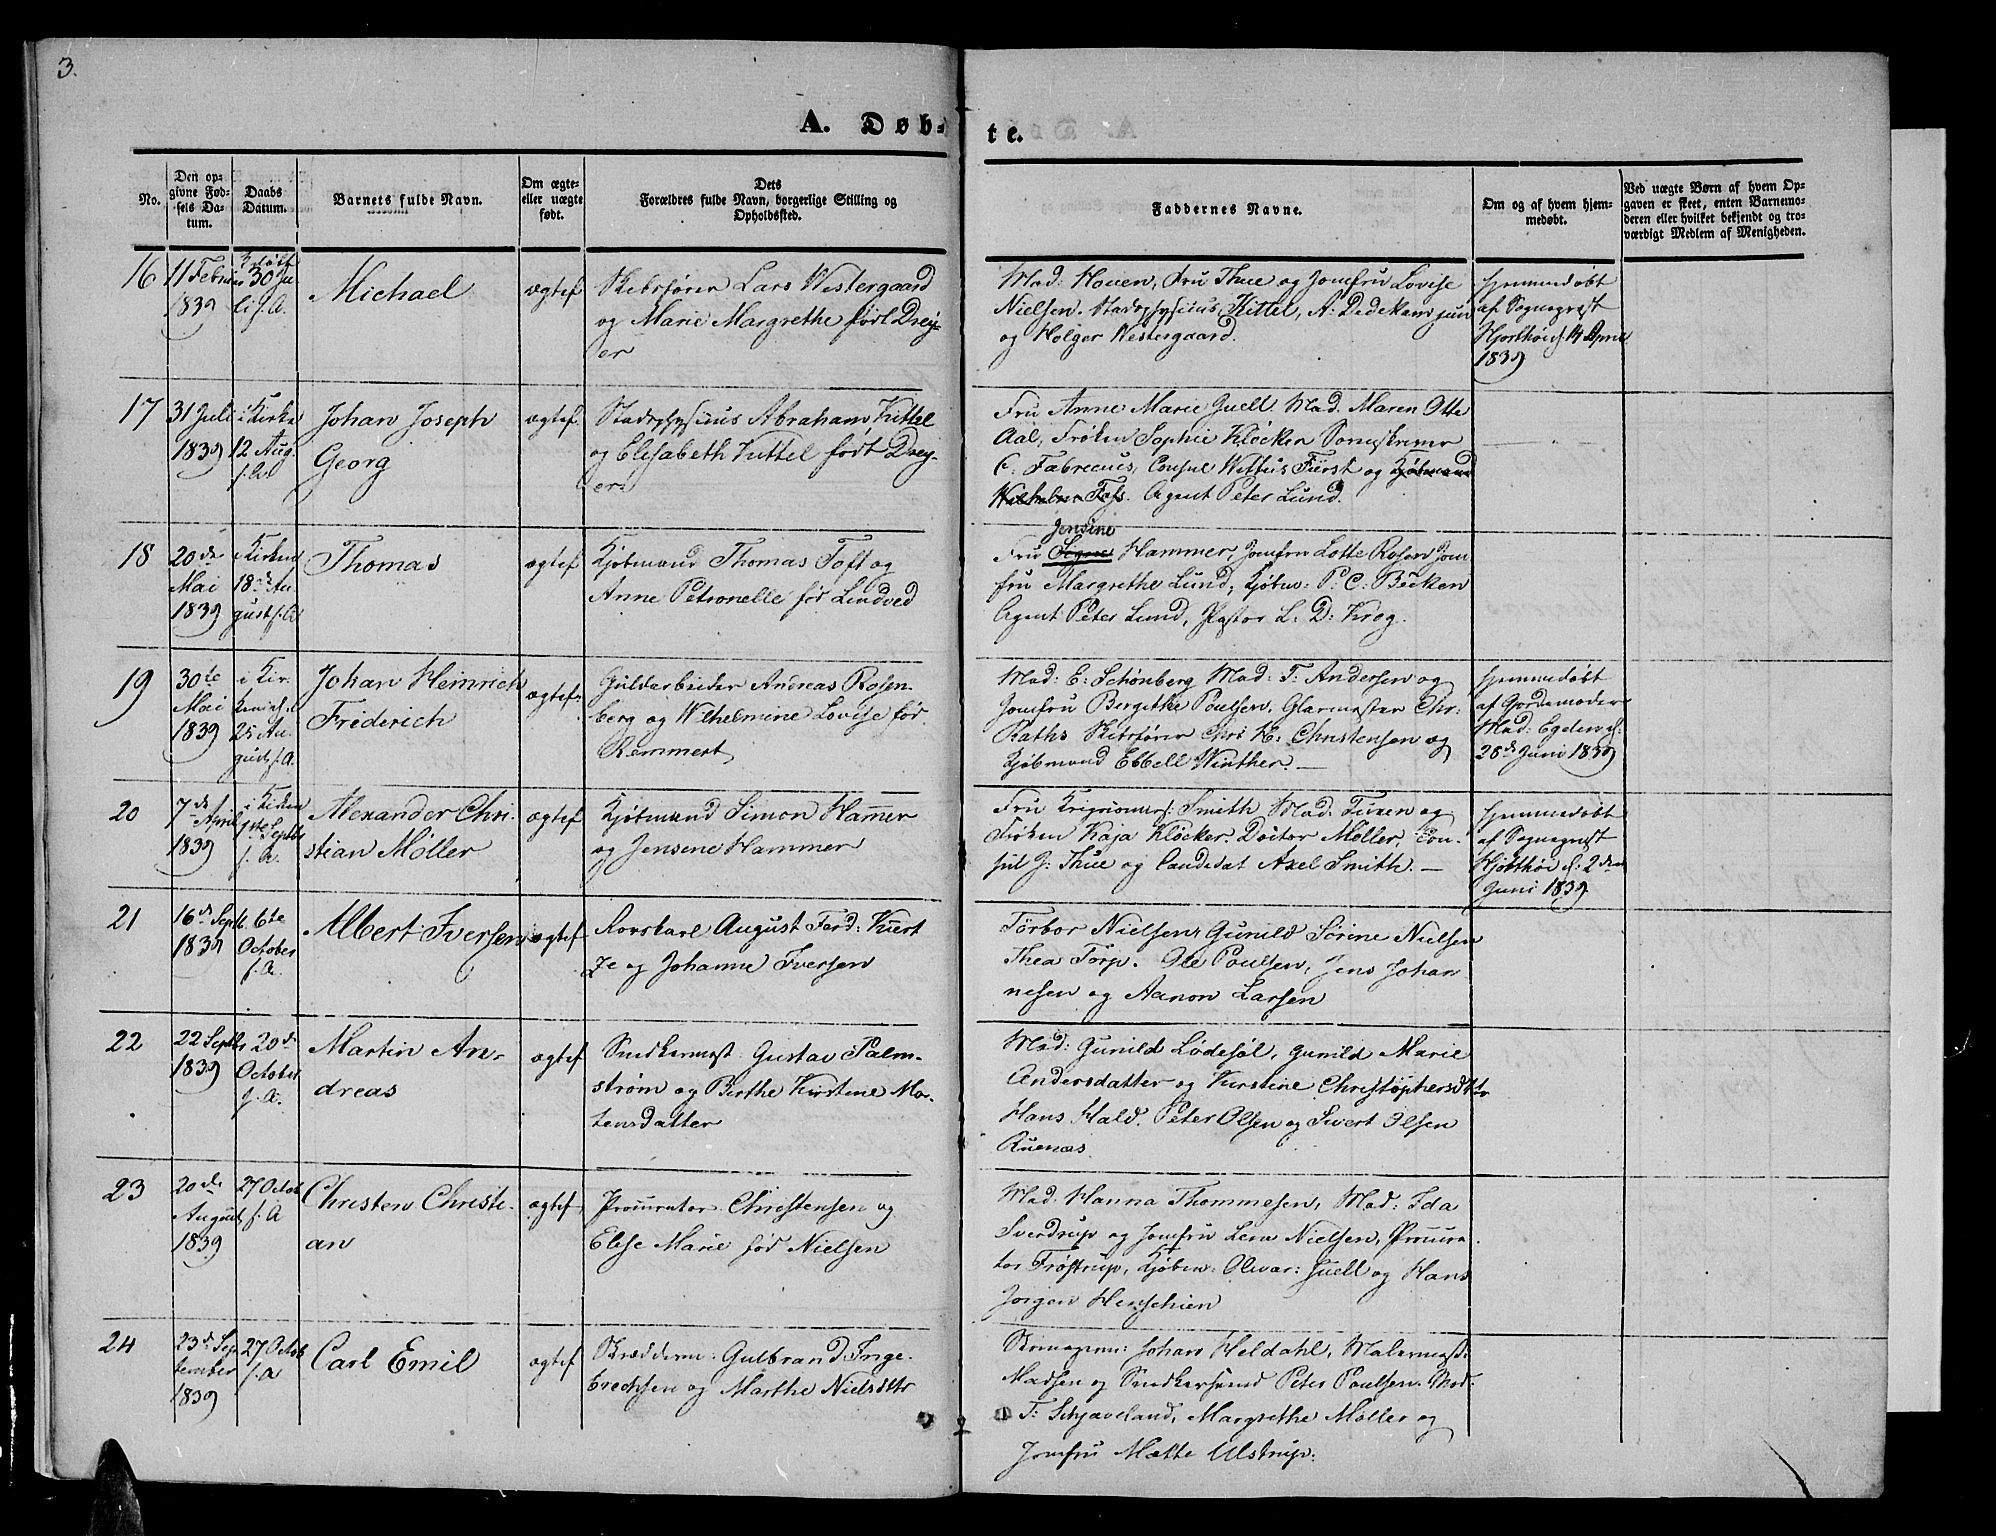 3.
A. Døb-
te.
No.
Den op-
givne Fød-
sels Da-
tum.
Daabs
Datum.
Barnets fulde Navn.
Om ægte-
eller uægte
født.
Dets
Forældres fulde Navn, borgerlige Stilling og
Opholdssted.
Faddernes Navne.
Om og af hvem hjem-
medøbt.
Ved uægte Børn af hvem Op-
gaven er skeet, enten Barnemo-
deren eller hvilket bekjendt og tro-
værdigt Medlem af Menigheden.
16
11 Februar
1839
30 Ju
li s. A.
Michael
ægtef
Skibsfører Lars Westergaard
og Marie Margrethe født Drey-
er
Mad: Houen, Fru Thue og Jomfru Lovise
Nielsen. Stadsphysicus Kittel, A: Dedekam jun
og Holger Westergaard.
Hjemmedøbt
af Sogneprest
Hjorthøi d. 14 April
1839
17
31 Juli
1839
i Kirke
12 Aug.
s. A.
Johan Joseph
Georg
ægtef
Stadsphysicus Abraham Kittel
og Elisabeth Kittel født Drey-
er.
Fru Anne Marie Juell. Mad. Maren Otte
Aal, Frøken Sophie Kløcker
C: Fabrecius, Consul Wittus Fürst og Kjøbmand
Wilhelm Foss. Agent Peter Lund.
18
20de
Mai
1839
i Kirken
18de Au
gust s. A.
Thomas
ægtef
Kjøbmand Thomas Toft og
Anne Petronelle fød Lindved
Jensine
Fru Signe Hammer, Jomfru Lotte Rosen Jom
fru Margrethe Lund, Kjøbm: P. C: Böcken
Agent Peter Lund, Pastor L. D: Krog.
19
30te
Mai
1839
i Kir-
ken d.
25 Au
gust s. A.
Johan Heinrich
Friderich
ægtef
Guldarbeider Andreas Rosen-
berg og Wilhelmine Lovise fød
Remmert
Mad: E: Schønberg Mad: T: Andersen og
Jomfru Bergethe Poulsen, Glarmester Chr:
Raths Skibsfører Chr: H: Christensen og
Kjøbmand Ebbell Winther. —
Hjemmedøbt
af Gjordemoder
Mad: Egelien d:
28de Juni 1839
20
7de April
1839
i Kirken
Septbr
s. A.
Alexander Chri-
stian Møller
ægtef
Kjøbmand Simon Hamer
og Jensene Hammer
Fru Smith Mad. Tuxen og
Frøken Kaja Kløcker. Doctor Møller, Con-
sul J: Thue og Candidat Axel Smith. —
Hjemmedøbt
af Sogneprest
Hjorthøi d: 2den
Juni 1839
21
16de Septb.
1839
6te
October
s. A.
Albert Iversen
ægtef
Rorskarl August Ferd: Kuert
ze og Johanne Iversen
Torbor Nielsen, Gunild Sørine Nielsen
Thea Torp. Ole Poulsen, Jens Johan
nesen og Aanon Larsen
22
22 Septbr
1839
20de
October
s. A.
Martin An-
dreas
ægtef
Snedkermest. Gustav Palm-
strøm og Berthe Kirstine Mor-
tensdatter
Mad: Gunild Lødesøl, Gunild Marie
Andersdatter og Kirstine Christophersdtter
Hans Hald. Peter Olsen og Sivert Olsen
Ruenæs
23
20de
August
1839
27 Octob
s. A
Christen Christi-
an
ægtef
Procurator Christensen og
Elise Marie fød Nielsen
Mad. Hanna Thommesen, Mad: Ida
Sverdrup og Jomfru Lene Nielsen, Procura
tor Frøstrup, Kjøbm: Oluar: Juell og Hans
Jørgen Henschien
24
23de Sep
tember
1839
27 Octob
s. A
Carl Emil
ægtef
Skrædderm: Gulbrand Inge-
brechsen og Marthe Nielsdttr
Skomagerm: Johan Heldahl, Malermest:
Madsen og Snedkersvend Peter Poulsen. Mad.
T: Schjaveland, Margrethe Møller og
Jomfru Mætte Ulstrup.
2